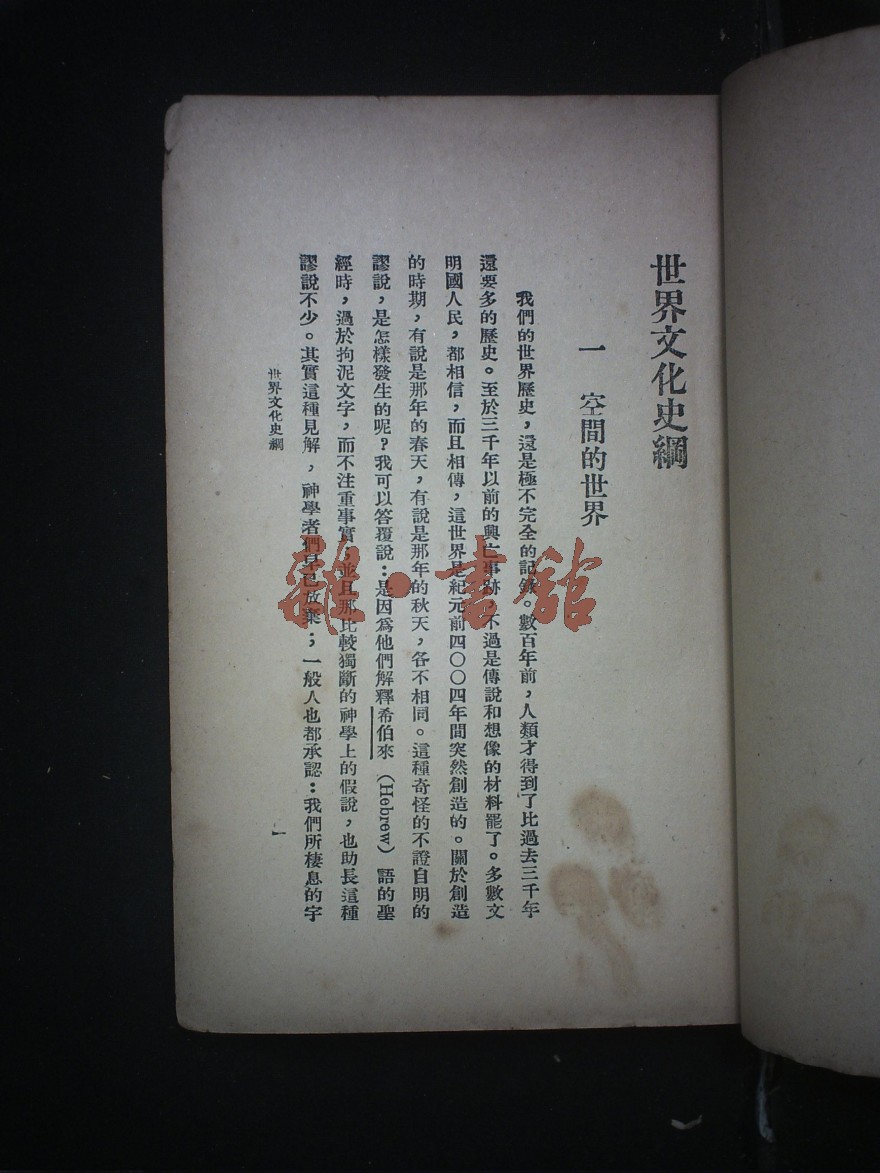 世界文化史綱
一　空間的世界
我們的世界歷史，還是極不完全的記錄。數百年前，人類才得到了比過去三千年
還要多的歷史。至於三千年以前的興亡事跡，不過是傳說和想像的材料罷了。多數文
明國人民，都相信，而且相傳，這世界是紀元前四〇〇四年間突然創造的。關於創造
的時期，有說是那年的春天，有說是那年的秋天，各不相同。這種奇怪的不證自明的
謬說，是怎樣發生的呢？我可以答覆說：是因爲他們解釋希伯來（Hebrew）語的聖
經時，過於拘泥文字，而不注重事實，並且那比較獨斷的神學上的假說，也助長這種
謬說不少。其實這種見解，神學者們早已放棄；一般人也都承認：我們所棲息的宇
世界文化史綱
一
雜·書館